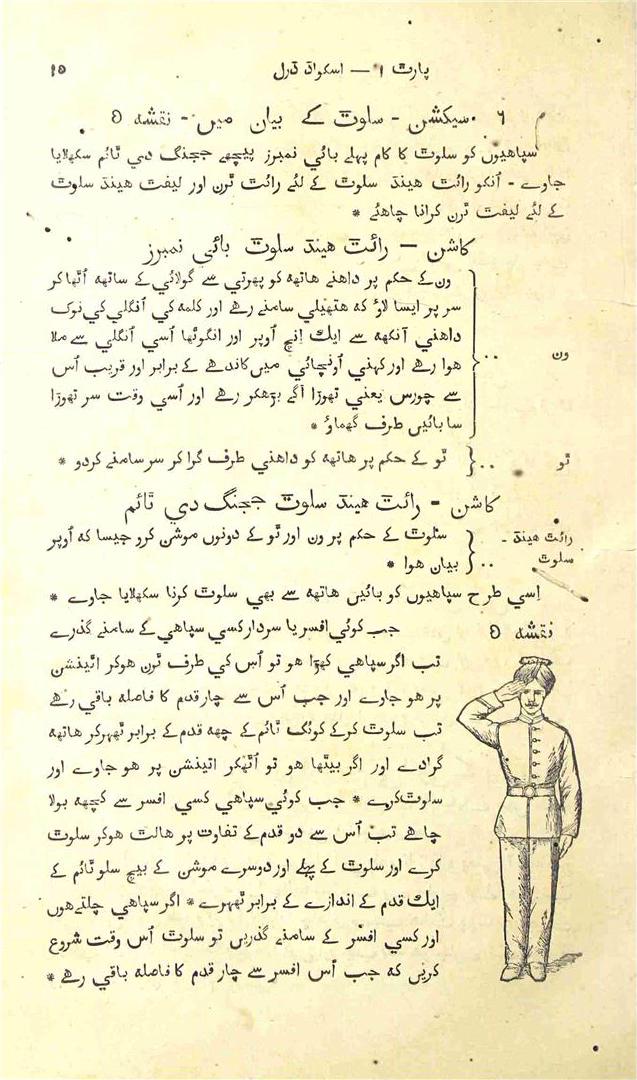 پارٹ ۱ — اسکواڈ ڈرل ۱۵
۶ سیکشن - سلوٹ کے بیان میں - نقشہ ۵
سپاھیوں کو سلوٹ کا کام پہلے بائي نمبرز پیچھے ججنگ دي ٹائم سکھلایا
جاوے - اُنکو رائٹ ھینڈ سلوٹ کے لئے رائٹ ٹرن اور لیفٹ ھینڈ سلوٹ
کے لئے لیفٹ ٹرن کرانا چاھئے *
کاشن — رائٹ ھینڈ سلوٹ بائي نمبرز
ون .. ون کے حکم پر داھنے ھاتھہ کو پھرتي سے گولائي کے ساتھہ اُٹھا کر
سر پر ایسا لاؤ کہ ھتھیلي سامنے رھے اور کلمہ کي اُنگلي کي نوک
داھني آنکھہ سے ایك اِنچ اُوپر اور انگوٹھا اُسي اُنگلي سے ملا
ھوا رھے اور کہني اُونچائي میں کاندھے کے برابر اور قریب اُس
سے چورس یعني تھوڑا آگے بڑھکر رھے اور اُسي وقت سر تھوڑا
سا بائیں طرف گھماؤ *
ٹو .. ٹو کے حکم پر ھاتھہ کو داھني طرف گرا کر سر سامنے کردو *
کاشن - رائٹ ھینڈ سلوٹ ججنگ دي ٹائم
رائٹ ھینڈ - سلوٹ کے حکم پر ون اور ٹو کے دونوں موشن کرو جیسا کہ اُوپر
سلوٹ .. بیان ھوا *
اِسي طرح سپاھیوں کو بائیں ھاتھہ سے بھي سلوٹ کرنا سکھلایا جاوے *
نقشہ ۵ جب کوئي افسر یا سردار کسي سپاھي کے سامنے گذرے
تب اگر سپاھي کھڑا ھو تو اُس کي طرف ٹرن ھوکر اٹینشن
پر ھو جاوے اور جب اُس سے چار قدم کا فاصلہ باقي رھے
تب سلوٹ کرکے کوئک ٹائم کے چھہ قدم کے برابر ٹھہر کر ھاتھہ
گرادے اور اگر بیٹھا ھو تو اُٹھکر اٹینشن پر ھو جاوے اور
سلوٹ کرے * جب کوئي سپاھي کسي افسر سے کچھہ بولا
چاھے تب اُس سے دو قدم کے تفاوت پر ھالٹ ھوکر سلوٹ
کرے اور سلوٹ کے پہلے اور دوسرے موشن کے بیچ سلو ٹائم کے
ایك قدم کے اندازے کے برابر ٹھہرے * اگر سپاھي چلتے ھوں
اور کسي افسر کے سامنے گذریں تو سلوٹ اُس وقت شروع
کریں کہ جب اُس افسر سے چار قدم کا فاصلہ باقي رھے *